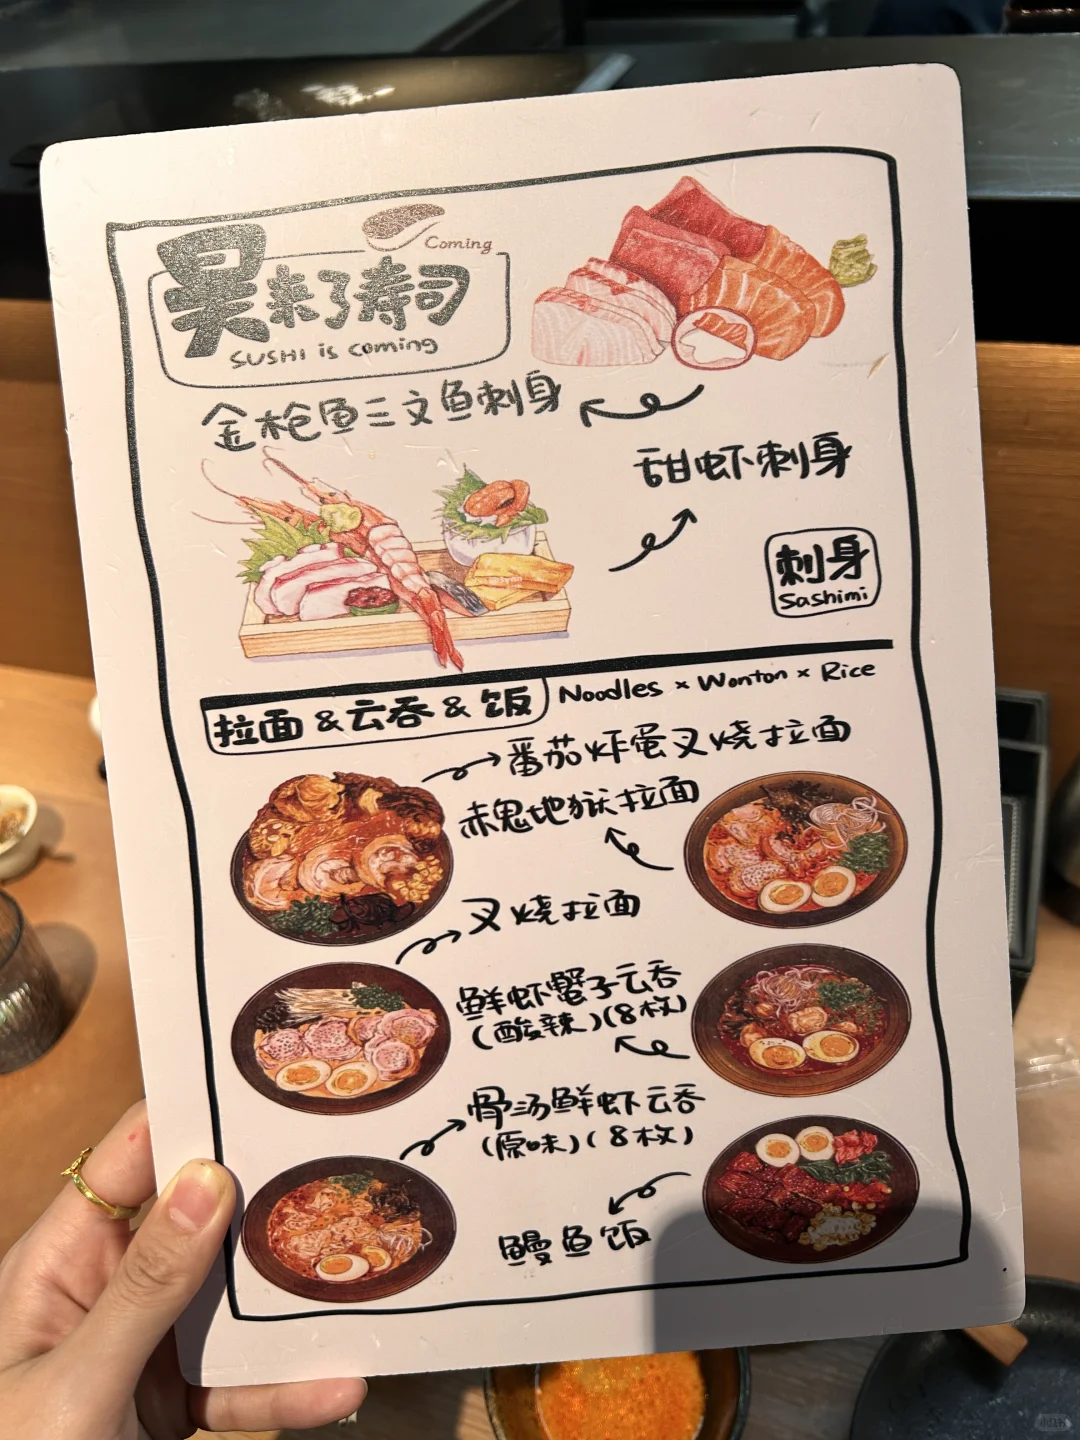 Coming
来了寿司
SUSHI is coming
金枪鱼三文鱼刺身
甜虾刺身
刺身
Sashimi
拉面 & 云吞 & 饭
Noodles × Wonton × Rice
番茄炸蛋叉烧拉面
赤鬼地狱拉面
叉烧拉面
鲜虾蟹子云吞
(酸辣)(8枚)
骨汤鲜虾云吞
(原味)(8枚)
鳗鱼饭